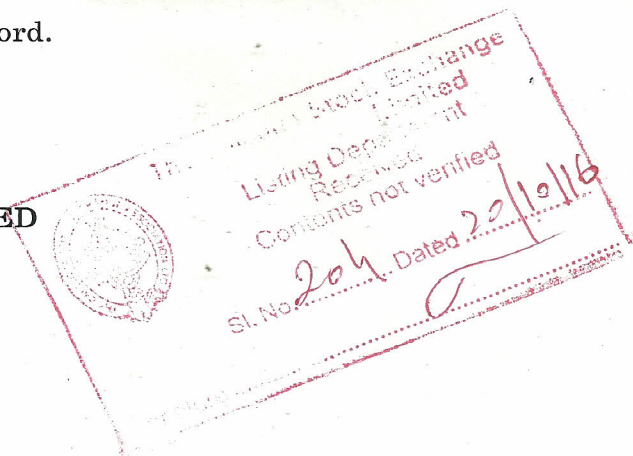 ord.
Stock Exchange
Limited
Listing Department
Received
Contents not verified
ED
Sl. No. Dated 20/10/16